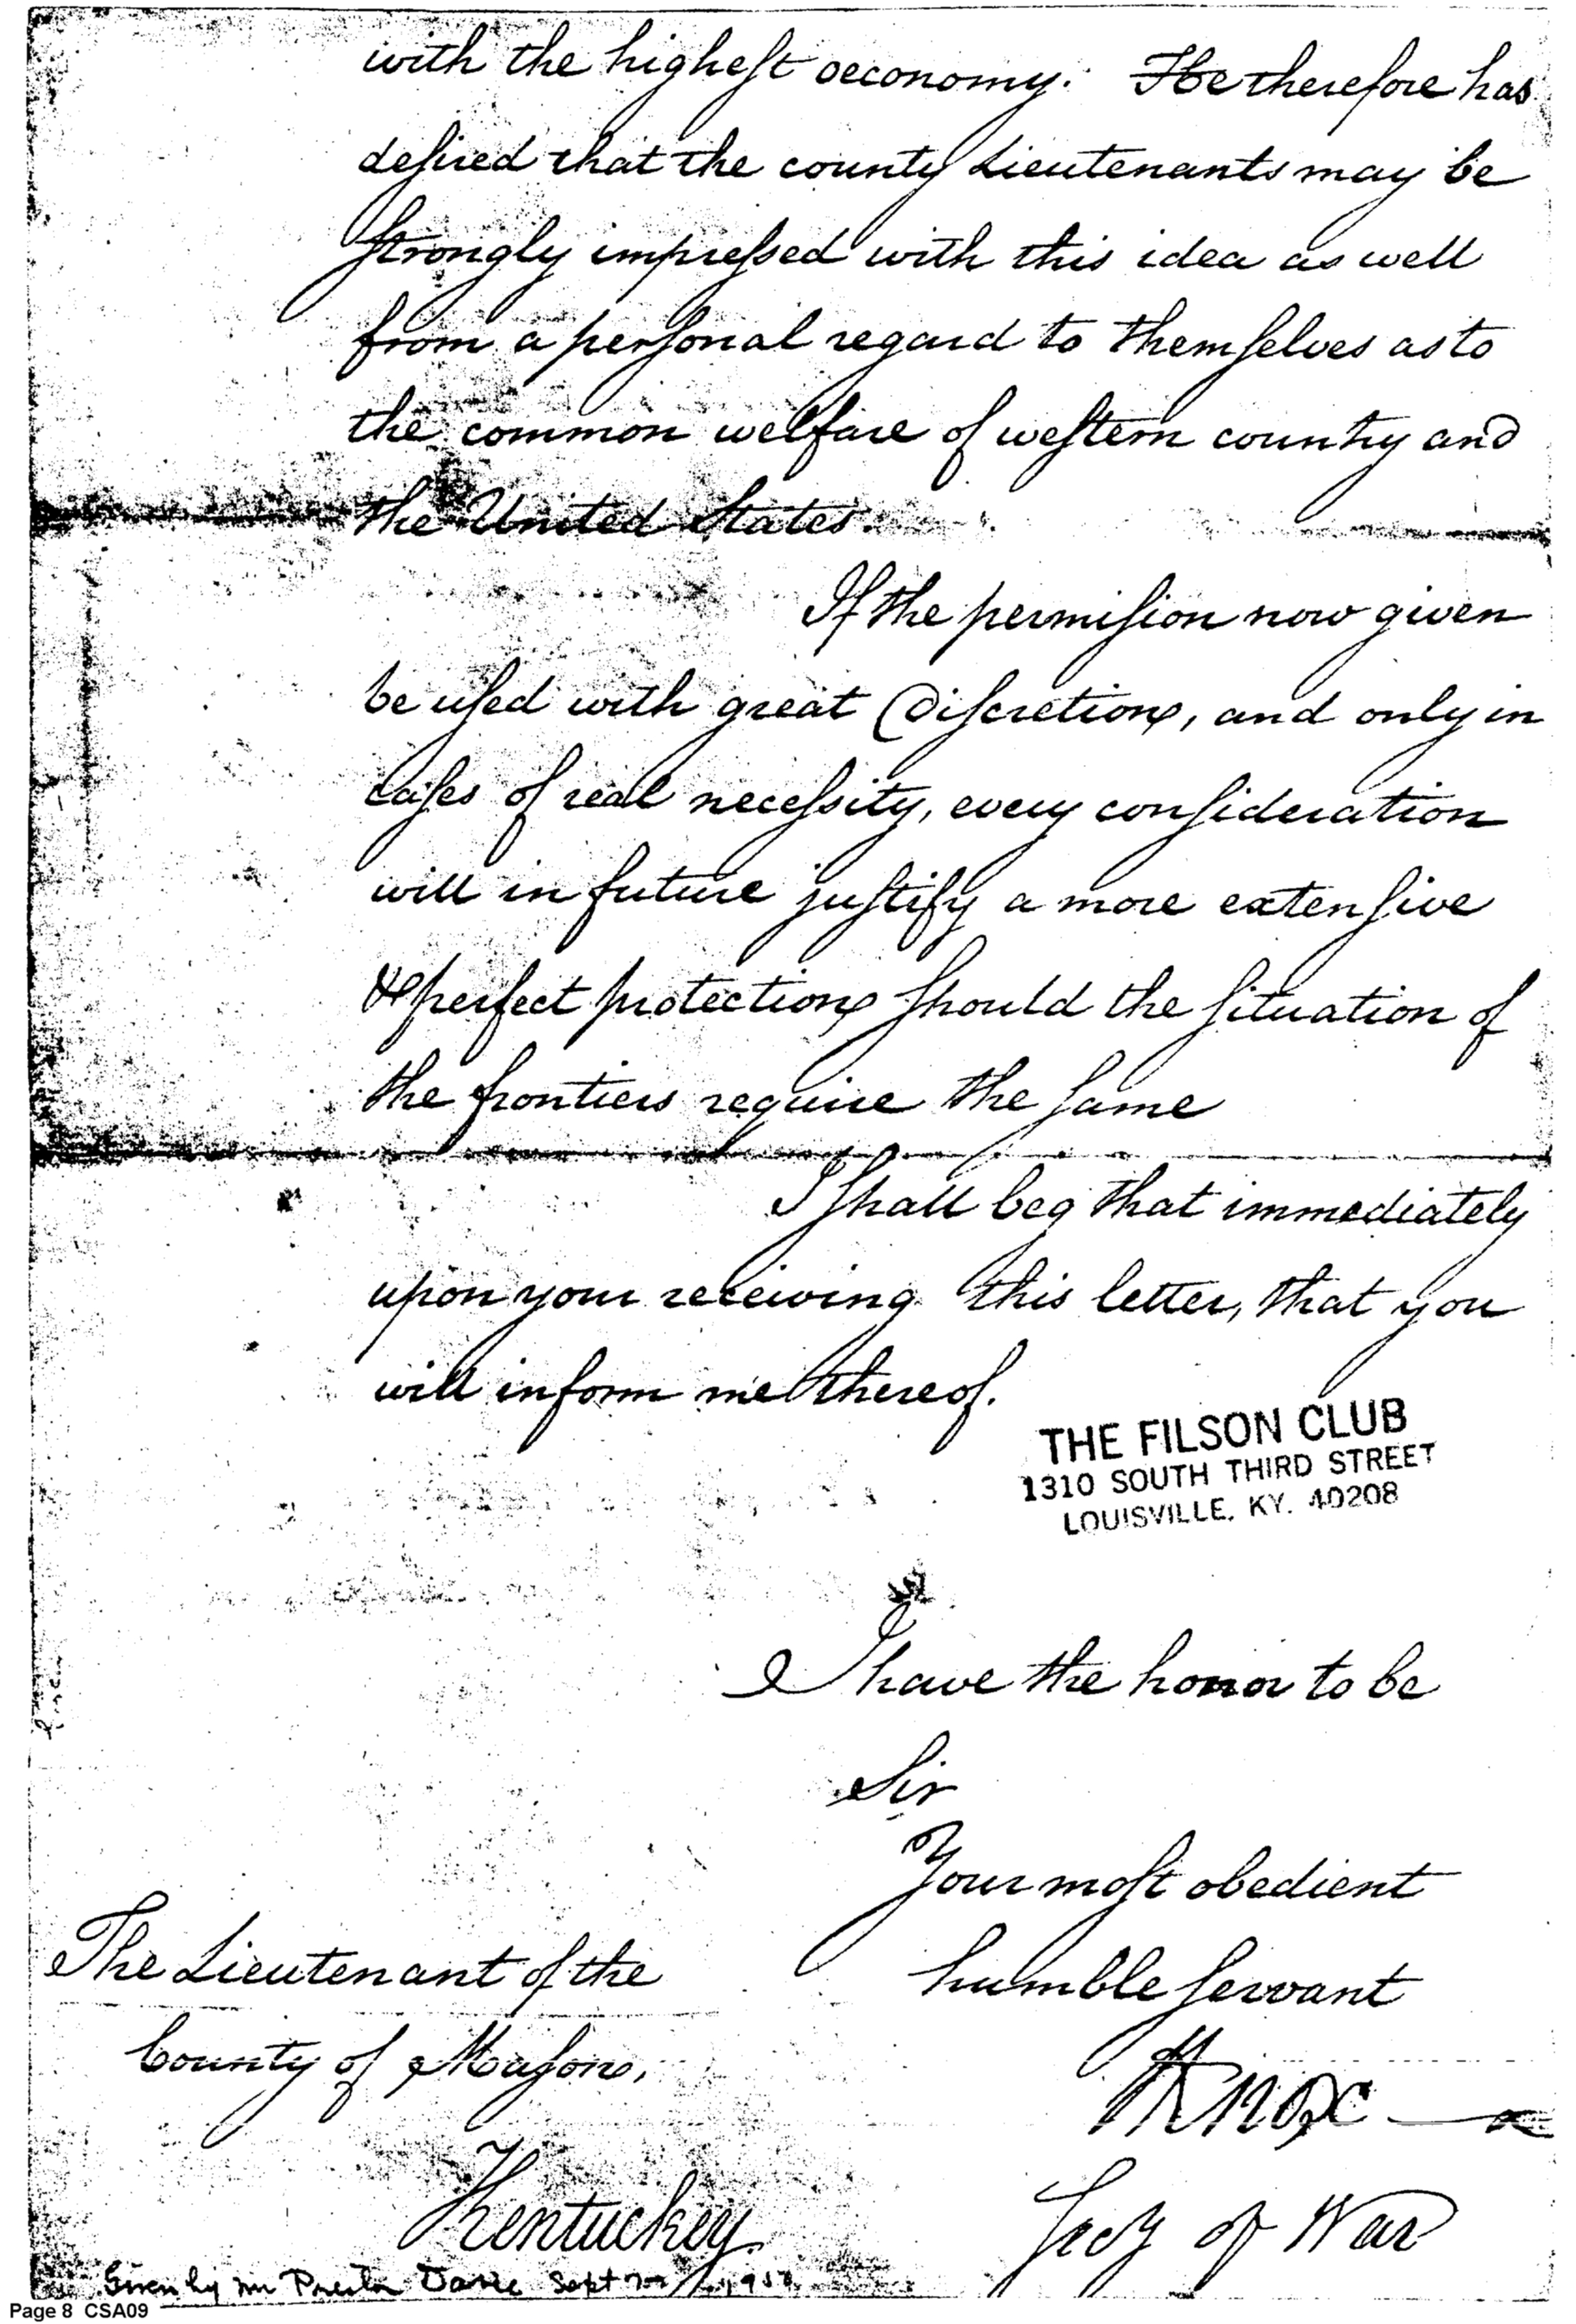 with the highest oeconomy. He therefore has
desired that the county Lieutenants may be
strongly impressed with this idea as well
from a personal regard to themselves as to
the common welfare of western country and
the United States.
If the permission now given
be used with great Discretion, and only in
cases of real necessity, every consideration
will in future justify a more extensive
& perfect protection should the situation of
the frontiers require the same
I shall beg that immediately
upon your receiving this letter, that you
will inform me thereof.
THE FILSON CLUB
1310 SOUTH THIRD STREET
LOUISVILLE, KY. 40208
I have the honor to be
Sir
Your most obedient
humble servant
The Lieutenant of the
County of Mason,
HKnox
Kentuckey
Secy of War
Given by Mr Preston Davie Sept
Page 8 CSA09